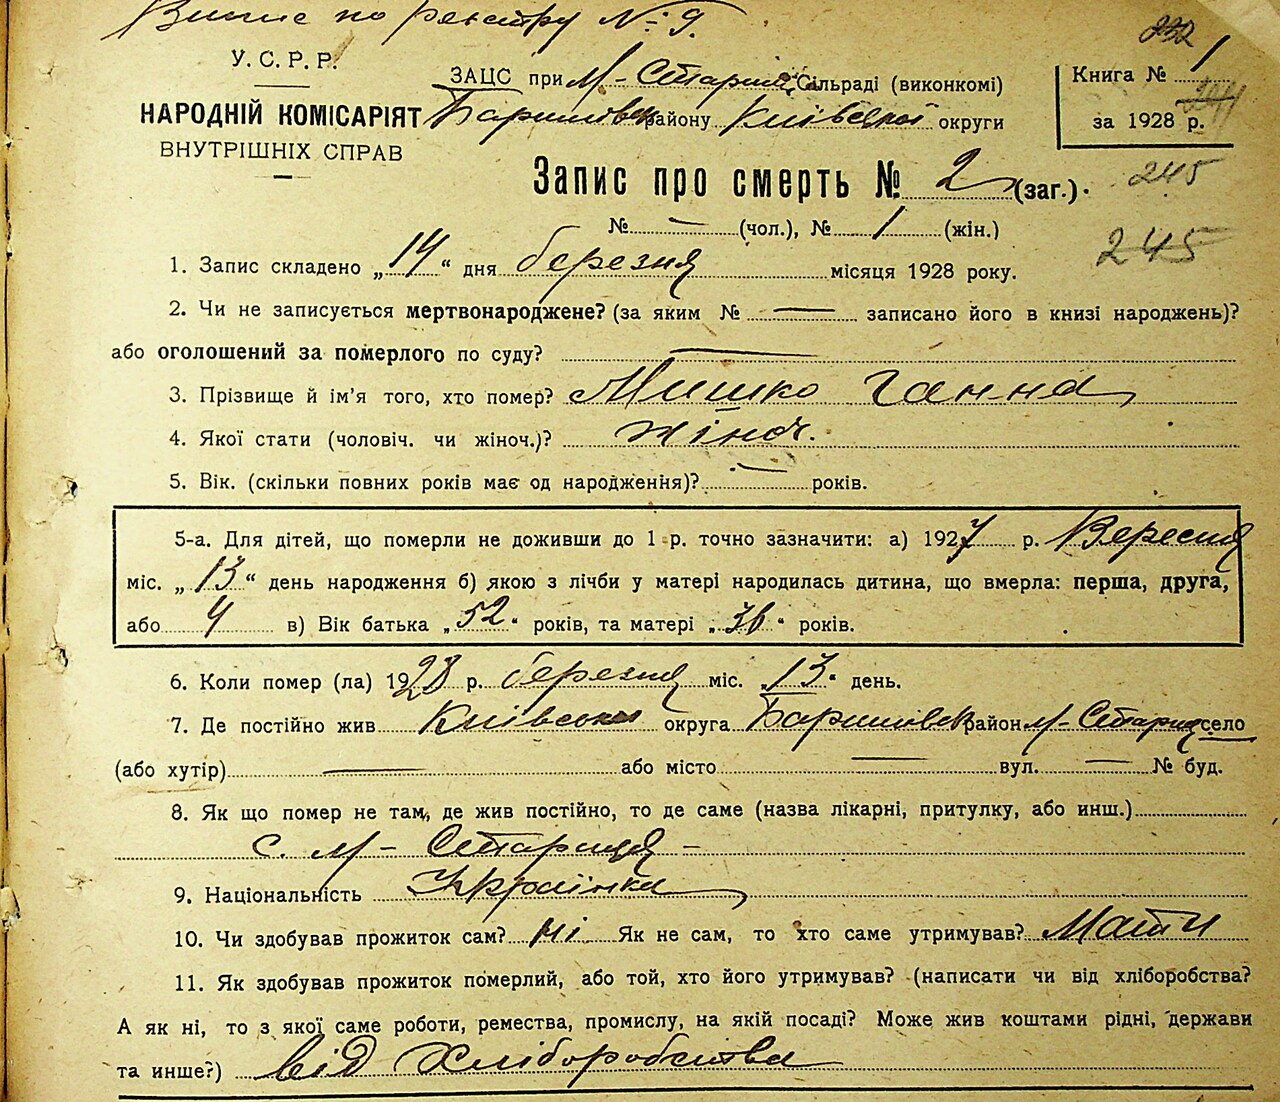 Випис по реєстру № 9.
232
У. С. Р. Р.
ЗАЦС при М-Стариця Сільраді (виконкомі)
Книга № 1
НАРОДНІЙ КОМІСАРІЯТ Баришівськ району Київської округи
244
за 1928 р.
ВНУТРІШНІХ СПРАВ
Запис про смерть № 2 (заг.).
245
№ — (чол.), № 1 (жін.)
245
1. Запис складено „14“ дня березня місяця 1928 року.
2. Чи не записується мертвонароджене? (за яким № — записано його в книзі народжень)?
або оголошений за померлого по суду? —
3. Прізвище й ім'я того, хто помер? Мишко Ганна
4. Якої стати (чоловіч. чи жіноч.)? жіноч.
5. Вік. (скільки повних років має од народження)? — років.
5-а. Для дітей, що померли не доживши до 1 р. точно зазначити: а) 1927 р. Вересня
міс. „13“ день народження б) якою з лічби у матері народилась дитина, що вмерла: перша, друга,
або 4 в) Вік батька „52“ років, та матері „36“ років.
6. Коли помер (ла) 1928 р. березня міс. „13“ день.
7. Де постійно жив Київська округа Баришівськ район М-Стариця село
(або хутір) — або місто — вул. — № буд.
8. Як що помер не там, де жив постійно, то де саме (назва лікарні, притулку, або инш.)
с. М-Стариця -
9. Національність Українка
10. Чи здобував прожиток сам? Ні Як не сам, то хто саме утримував? Мати
11. Як здобував прожиток померлий, або той, хто його утримував? (написати чи від хліборобства?
А як ні, то з якої саме роботи, ремества, промислу, на якій посаді? Може жив коштами рідні, держави
та инше?) від Хліборобства